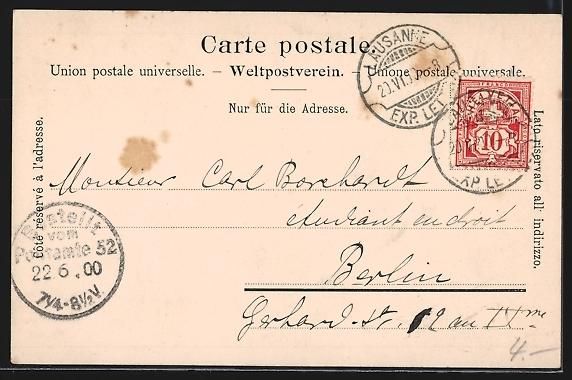 Carte postale.
Union postale universelle. – Weltpostverein. – Unione postale universale.
Nur für die Adresse.
Côté réservé à l'adresse.
Lato riservato all' indirizzo.
LAUSANNE
20.VI.
EXP. LET.
FRANCO
HELVETIA
10
EXP. LET.
Monsieur Carl Borchardt
étudiant en droit
Berlin
Gerhard-st. 12 au IVme
Bestellt
vom
Postamte 52
22.6.00
7¼-8½V.
4.-